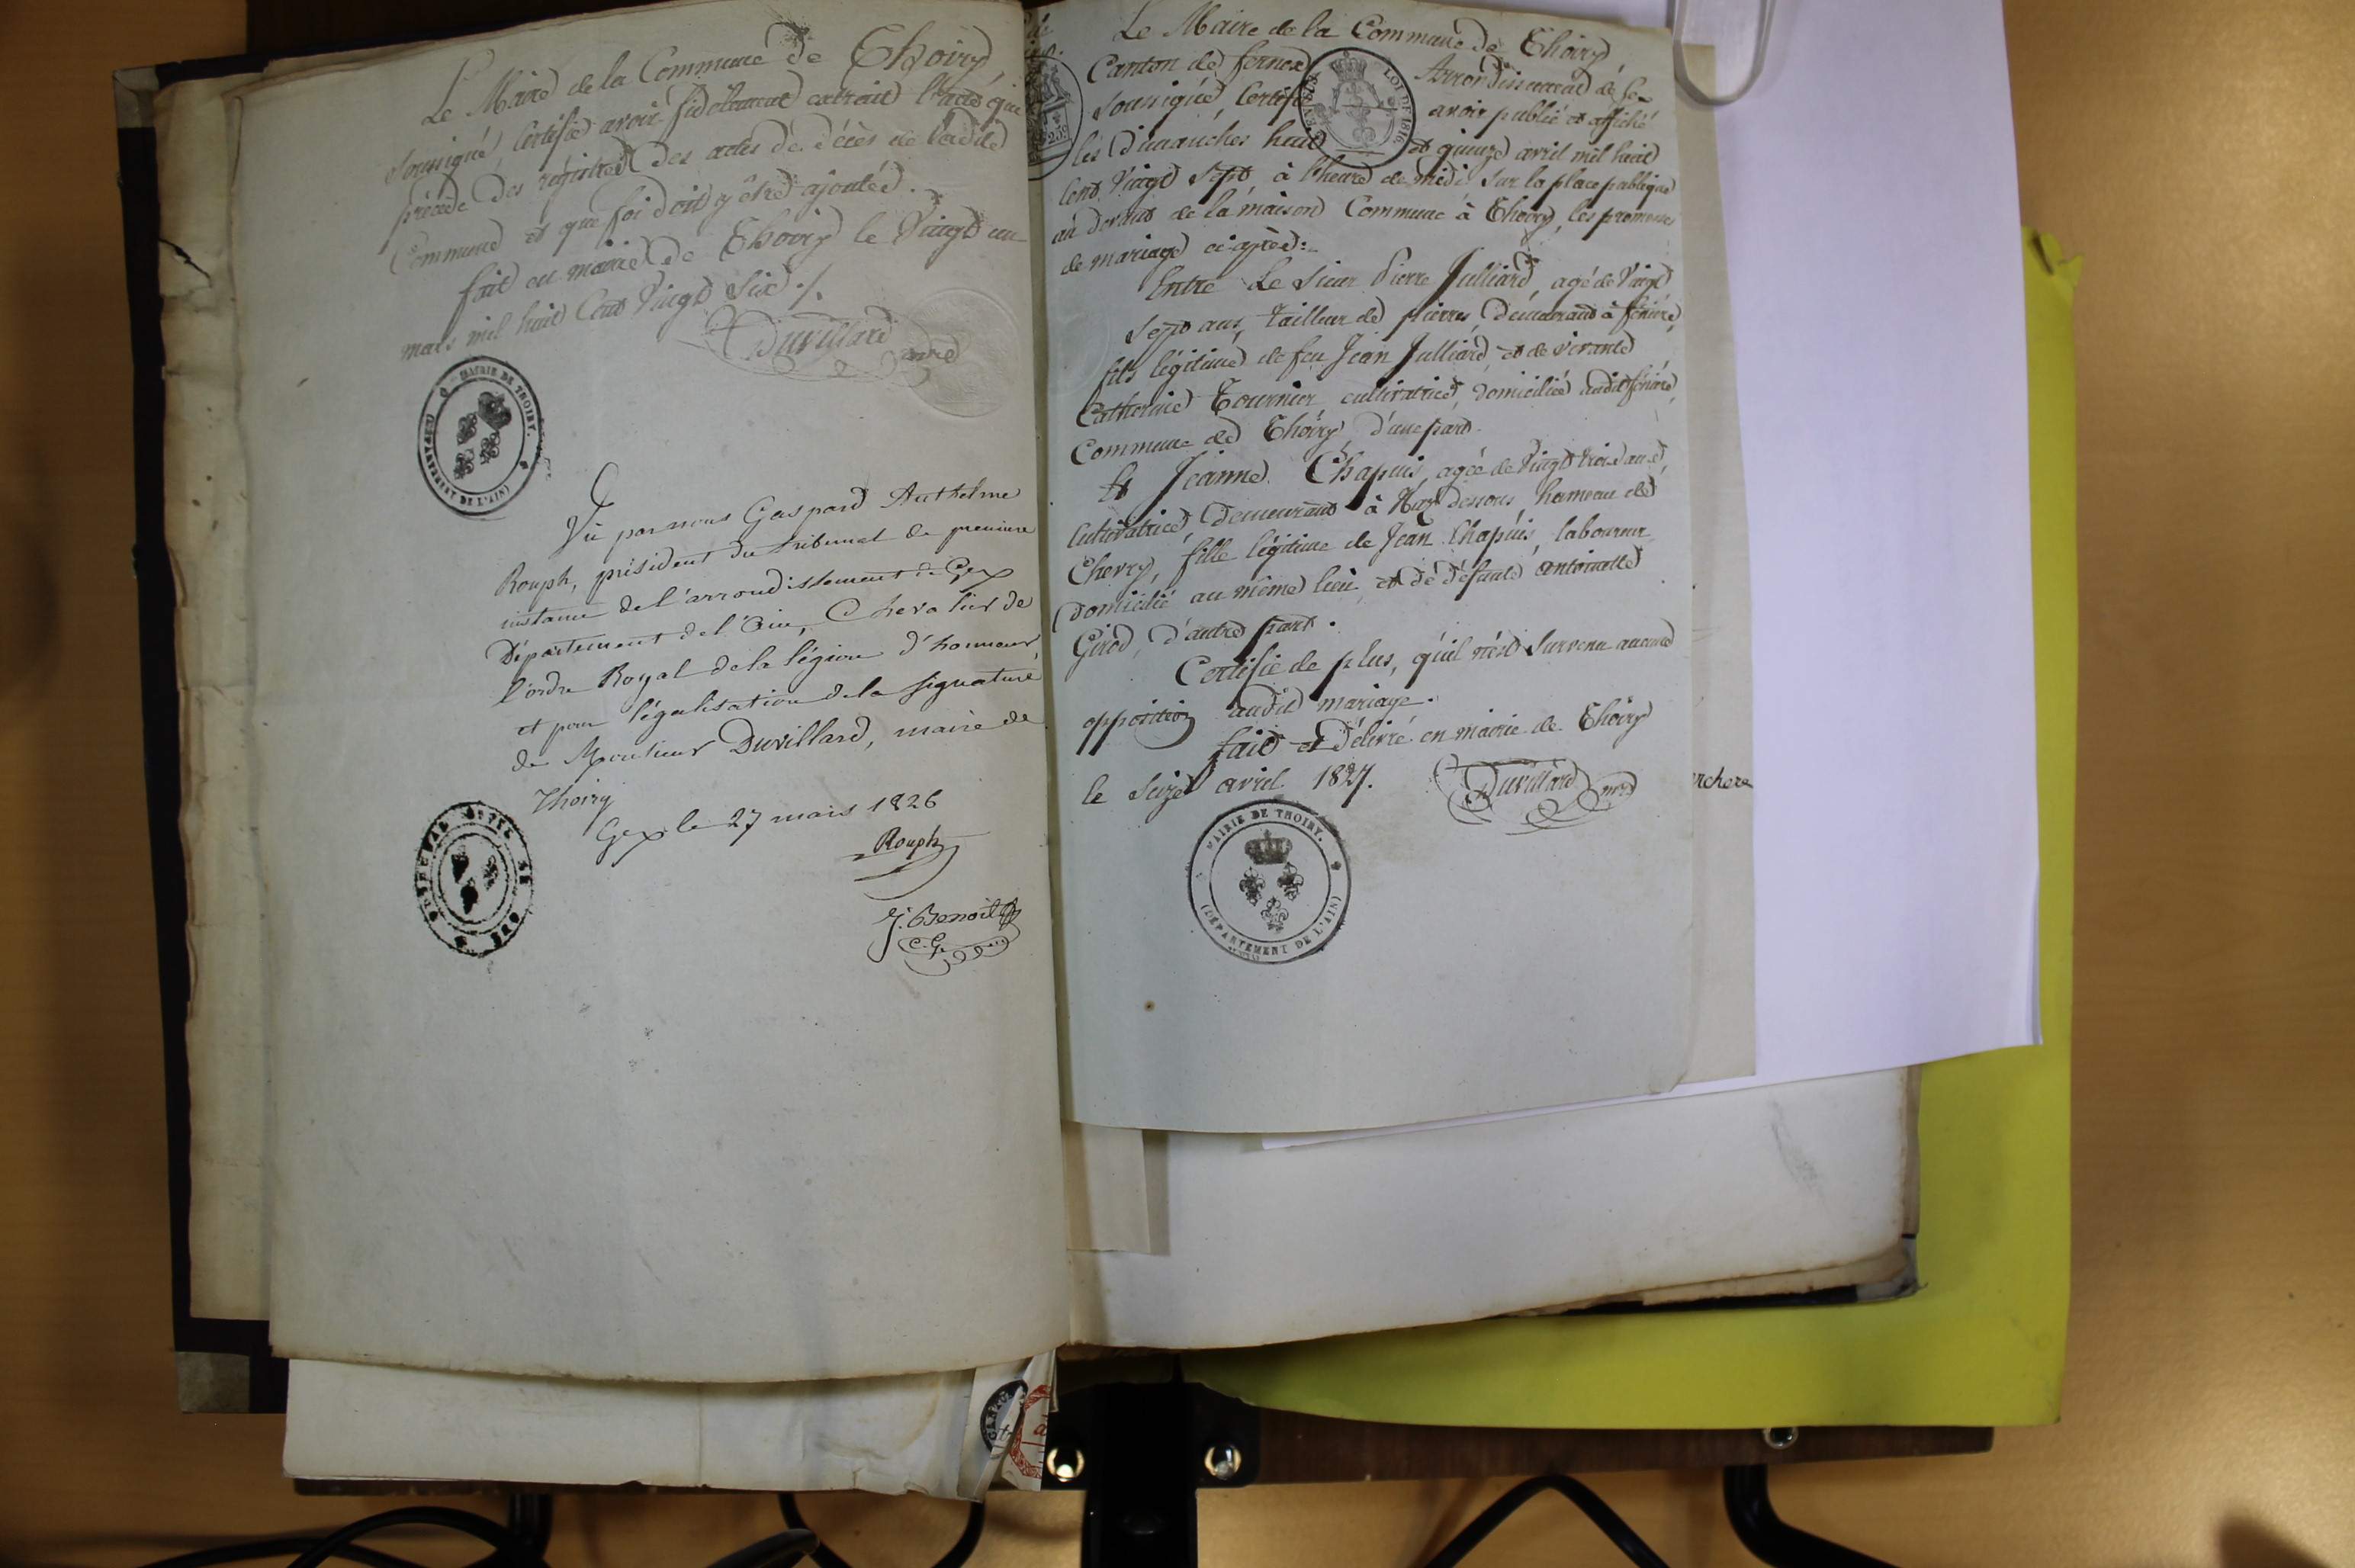 Le Maire de la Commune de Thoiry,
soussigné, Certifie avoir fidèlement extrait l'acte que
précède des régistres des actes de décès de ladite
Commune et que foi doit y être ajoutée.
fait en mairie de Thoiry le Vingt un
mars mil huit Cent Vingt Six ./.
Duvillard mre
MAIRIE DE THOIRY.
(DÉPARTEMENT DE L'AIN)
Vu par nous Gaspard Anthelme
Rouph, président du tribunal de première
instance de l'arrondissement de Gex
Département de l'Ain, Chevalier de
l'ordre Royal de la légion d'honneur,
et pour légalisation de la signature
de Monsieur Duvillard, maire de
Thoiry
Gex le 27 mars 1826
Rouph
J. Benoit
Le Maire de la Commune de Thoiry,
Canton de fernex Arrondissement de Gex
soussigné, Certifie avoir publié et affiché
les Dimanches huit et quinze avril mil huit
Cent Vingt Sept à l'heure de midi, sur la place publique
au devant de la maison Commune à Thoiry, les promesses
de mariage ci après:
LOI DE 1816
Entre Le sieur Pierre Julliard, agé de Vingt
Sept ans, tailleur de pierres, demeurant à fénière,
fils légitime de feu Jean Julliard, et de vivante
Catherine Tournier cultivatrice, domiciliée audit fénière,
Commune de Thoiry, d'une part.
Et Jeanne Chapuis, agée de Vingt trois ans,
Cultivatrice, demeurant à Naz dessous, hameau de
Chevry, fille légitime de Jean Chapuis, laboureur
domicilié au même lieu, et de défunte antoinette
Girod, d'autre part.
Certifie de plus, qu'il n'est survenu aucune
opposition audit mariage.
fait et délivré en mairie de Thoiry
le Seize avril 1827.
Duvillard mre
MAIRIE DE THOIRY.
(DÉPARTEMENT DE L'AIN)